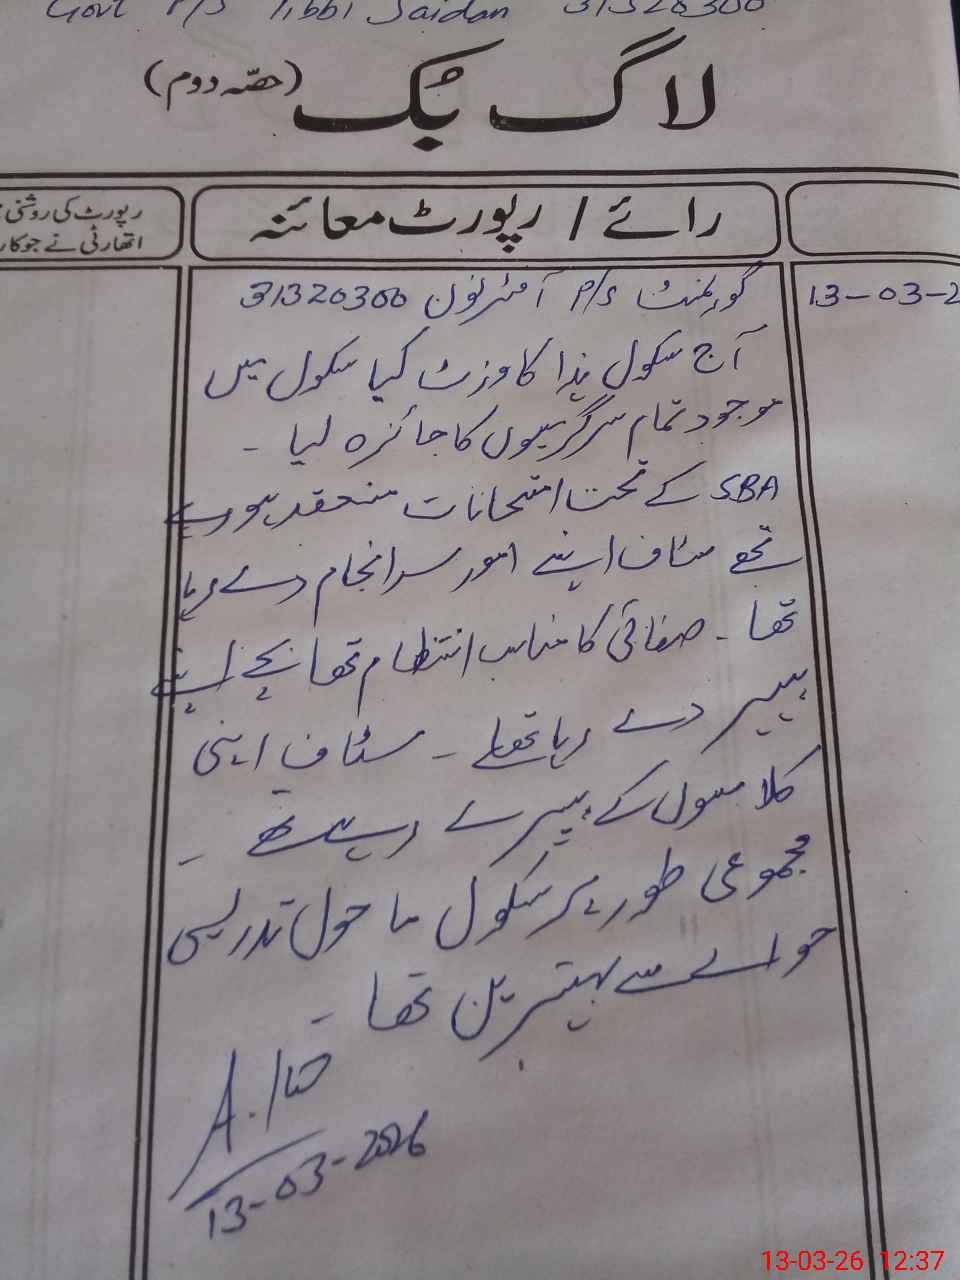 Govt P/S Tibbi Saidan 31320300
لاگ بُک (حصّہ دوم)
رائے / رپورٹ معائنہ
رپورٹ کی روشنی
اتھارٹی نے جو کار
13-03-2
گورنمنٹ P/S آفٹر نون 31320300
آج سکول ہذا کا وزٹ کیا سکول میں
موجود تمام سرگرمیوں کا جائزہ لیا ۔
SBA کے تحت امتحانات منعقد ہو رہے
تھے سٹاف اپنے امور سرانجام دے رہا
تھا ۔ صفائی کا مناسب انتظام تھا بچے اپنے
پیپر دے رہا تھے ۔ سٹاف اپنی
کلاسوں کے پیپر لے رہے تھے ۔
مجموعی طور پر سکول ماحول تدریسی
حوالے سے بہترین تھا ۔
13-03-2026
13-03-26 12:37